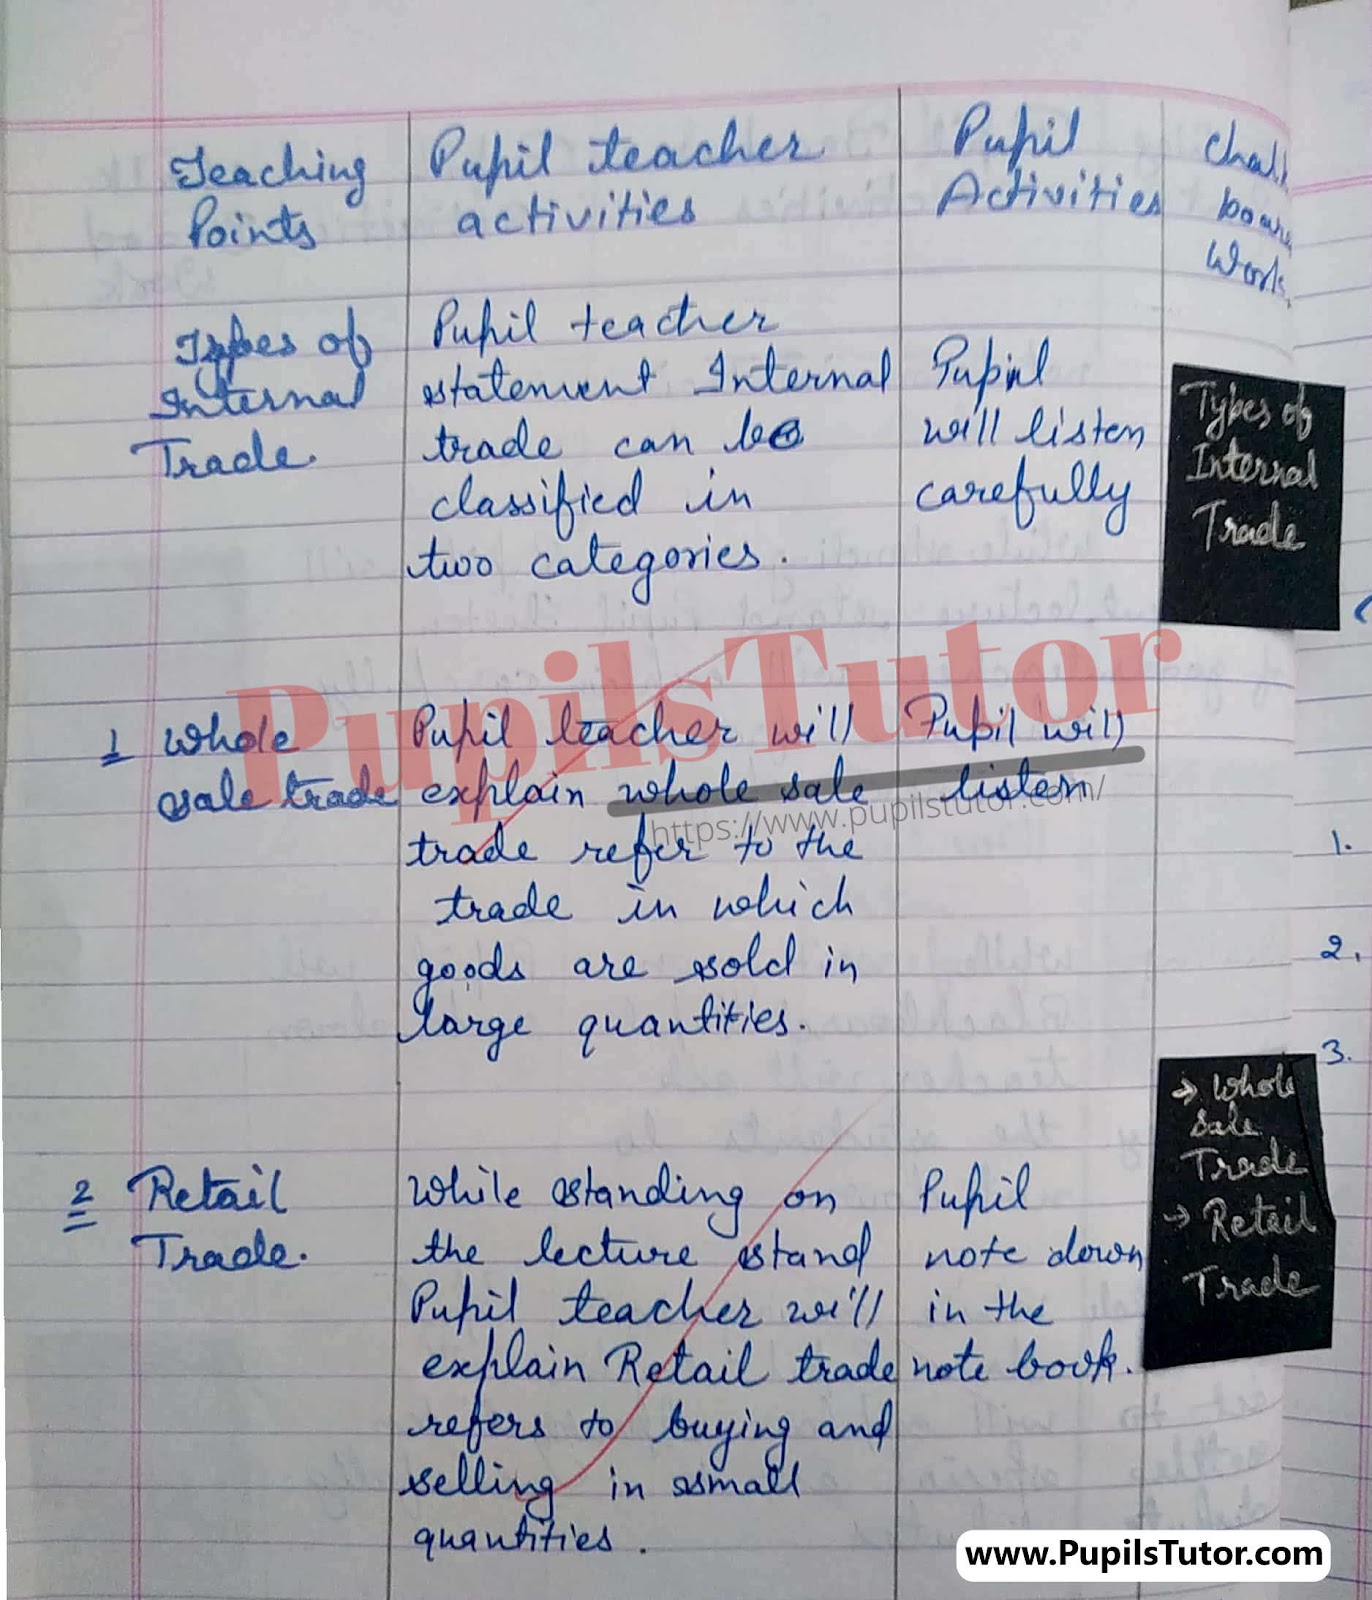 Teaching
Points
Pupil teacher
activities
Pupil
Activities
Chalk
board
Work
Types of
Internal
Trade.
Pupil teacher
statement Internal
trade can be
classified in
two categories.
Pupil
will listen
carefully
Types of
Internal
Trade
PupilsTutor
https://www.pupilstutor.com/
1 Whole
sale trade
Pupil teacher will
explain whole sale
trade refer to the
trade in which
goods are sold in
large quantities.
Pupil will
listen
2 Retail
Trade.
While standing on
the lecture stand
Pupil teacher will
explain Retail trade
refers to buying and
selling in small
quantities.
Pupil
note down
in the
note book.
→ Whole
Sale
Trade
→ Retail
Trade
1.
2.
3.
www.PupilsTutor.com